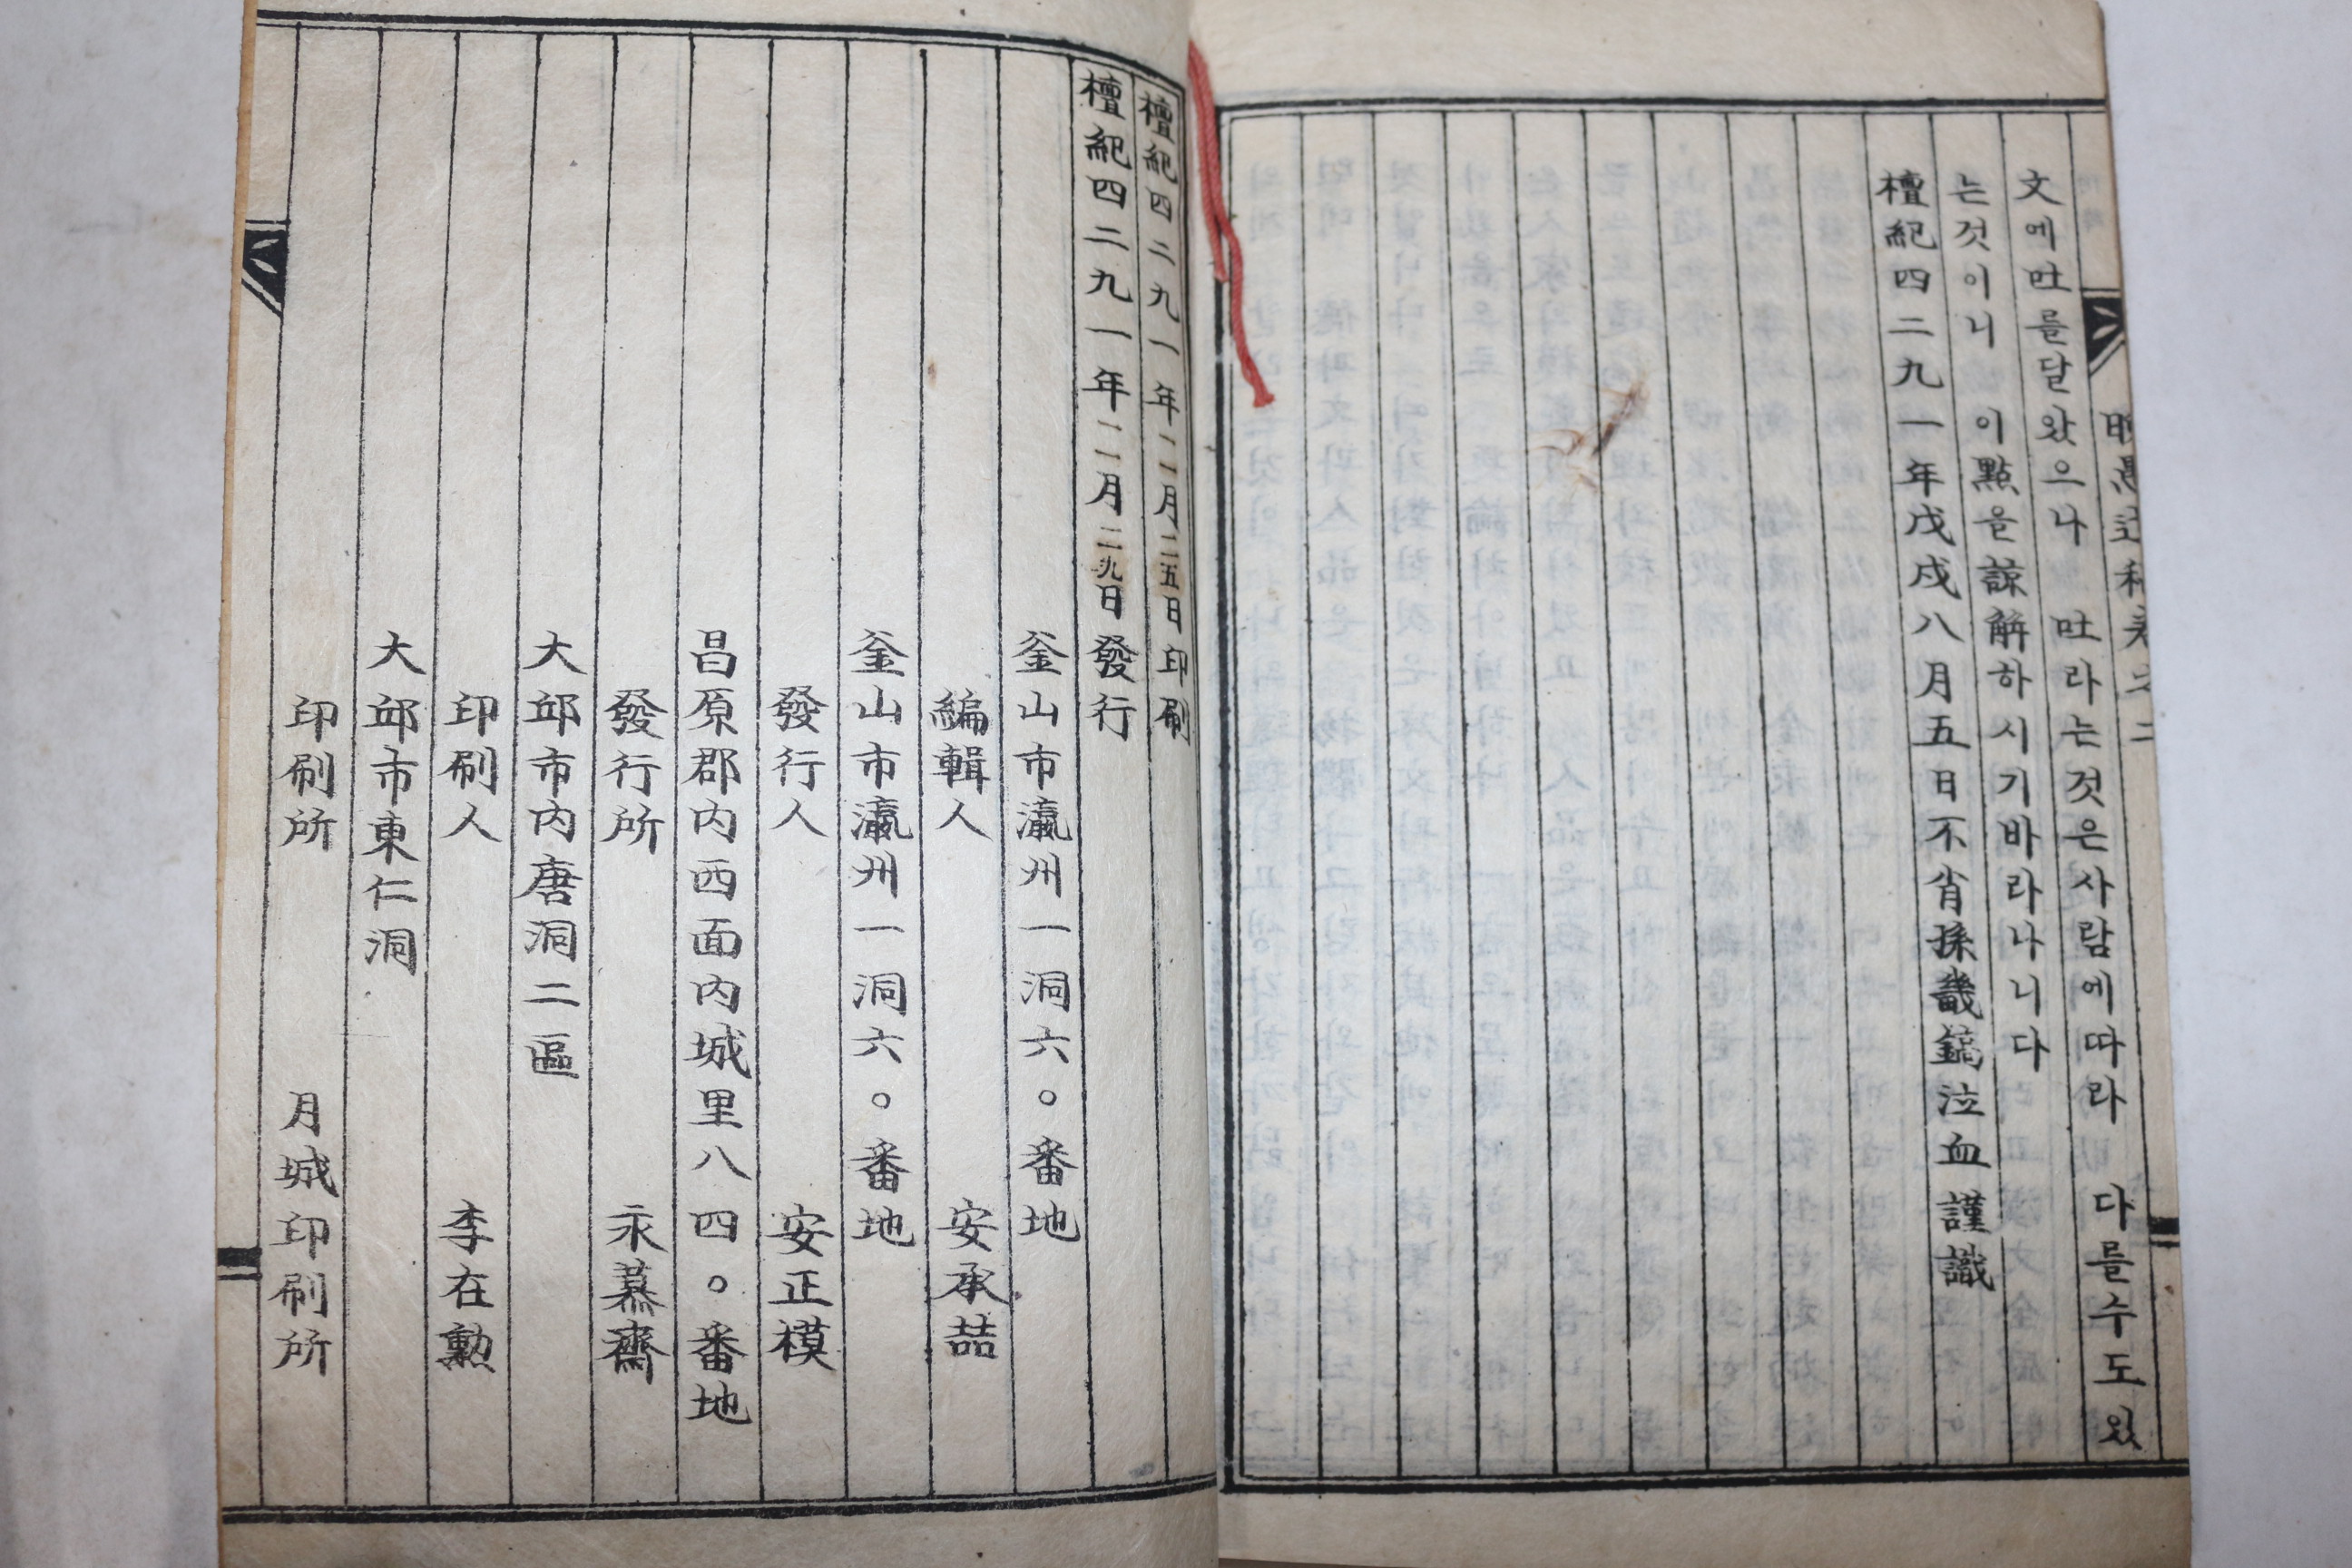 文에吐를달왔으나 吐라는것은사람에따라 다를수도있
는것이니 이點을諒解하시기바라나니다
檀紀四二九一年戊戌八月五日不肖孫 鎬泣血謹識
檀紀四二九一年一二月二五日印刷
檀紀四二九一年一二月二九日發行
釜山市瀛州一洞六〇番地
編輯人 安承喆
釜山市瀛州一洞六〇番地
發行人 安正模
昌原郡內西面內城里八四〇番地
發行所 永慕齋
大邱市內唐洞二區
印刷人 李在勳
大邱市東仁洞
印刷所 月城印刷所